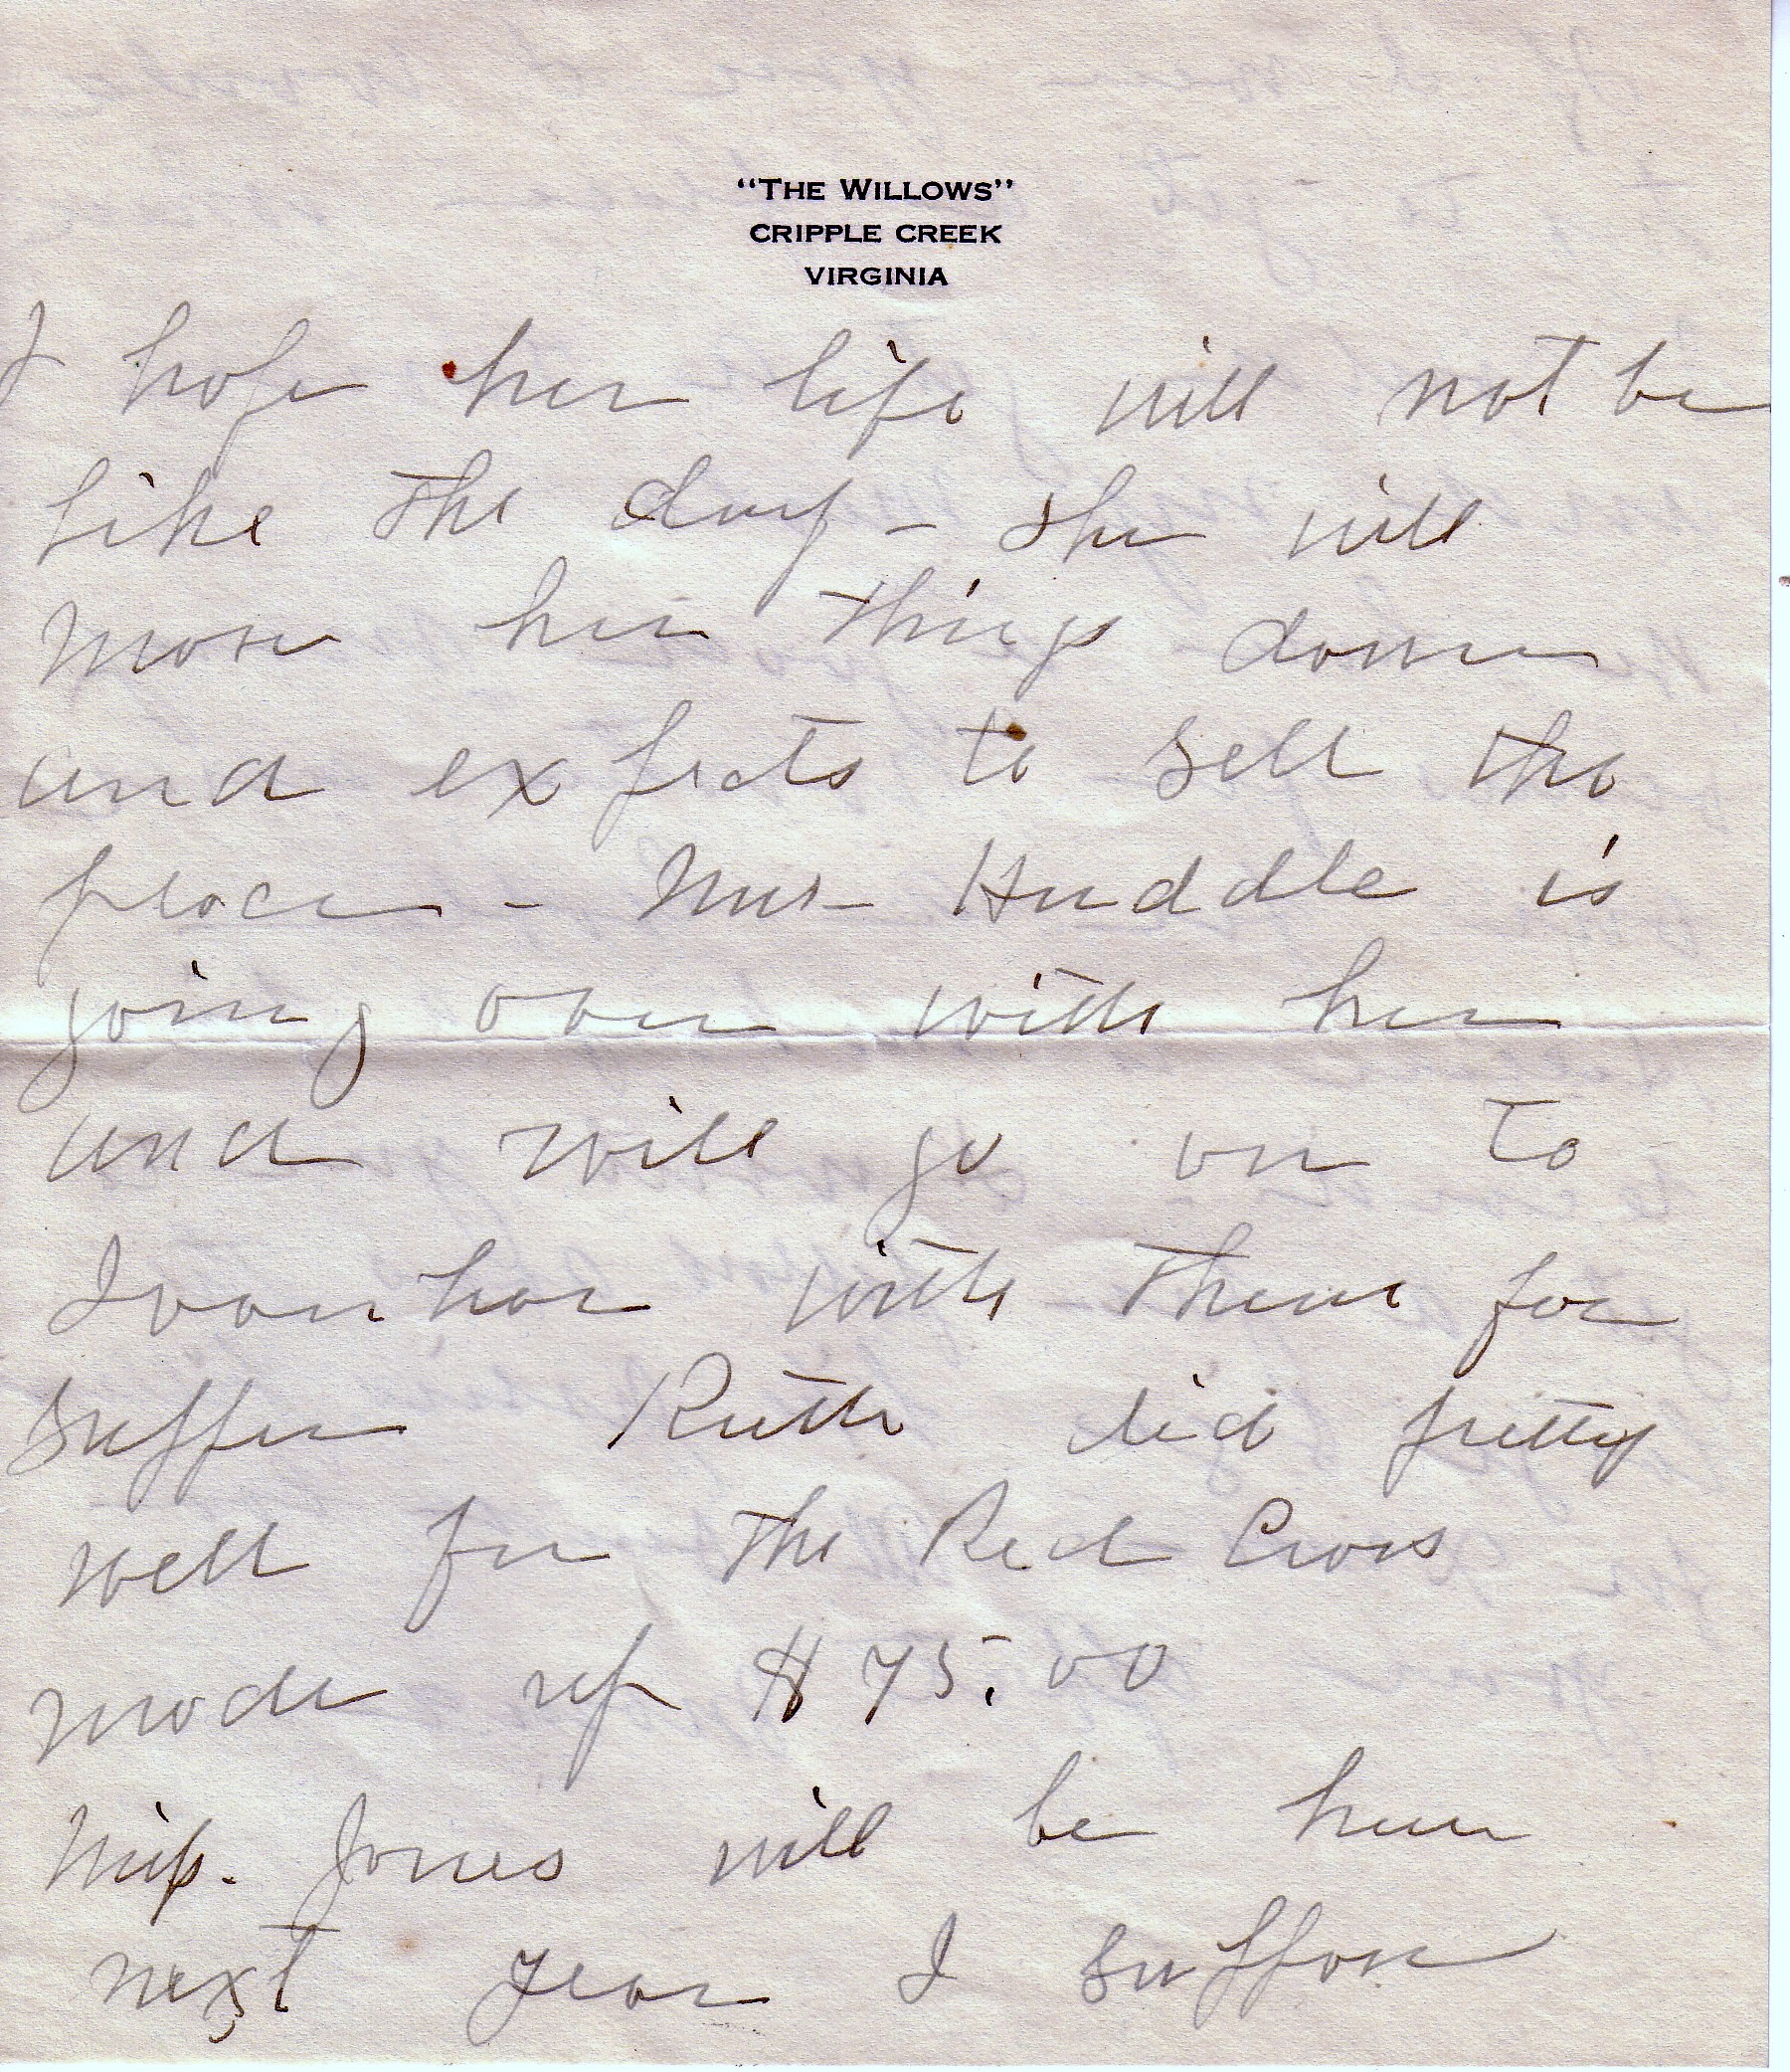 "THE WILLOWS"
CRIPPLE CREEK
VIRGINIA
I hope her life will not be
like the day - she will
move her things down
and expects to sell the
place - Mrs - Huddle is
going over with her
and will go on to
Ivanhoe with them for
supper Ruth did pretty
well for the Red Cross
made up $75.00
Miss. Jones will be here
next year I suppose